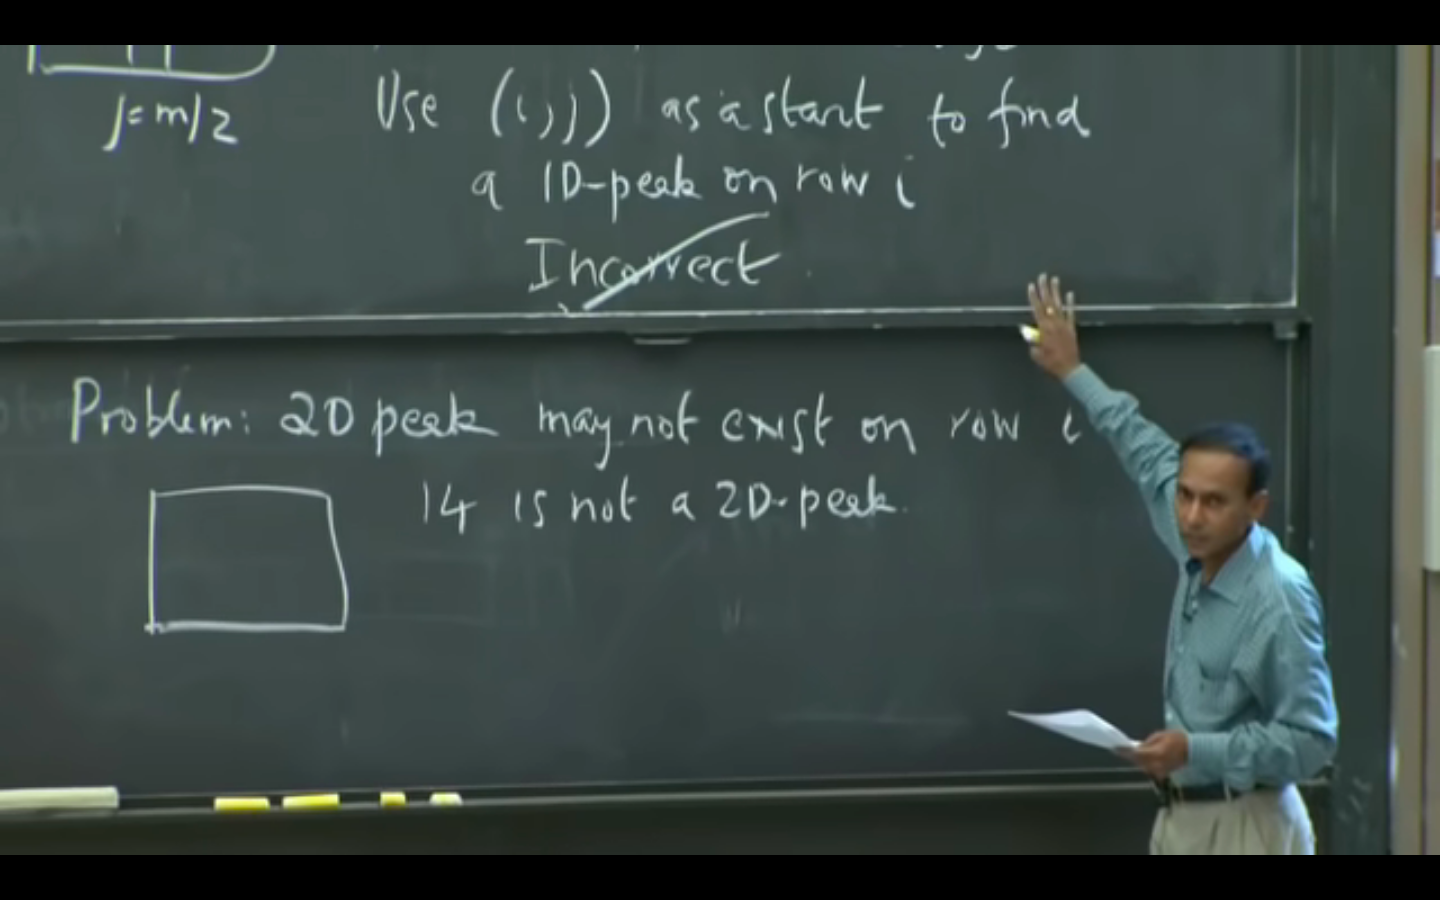 j=m/2
Use (i,j) as a start to find
a 1D-peak on row i
Incorrect
Problem: 2D peak may not exist on row i
14 is not a 2D-peak.